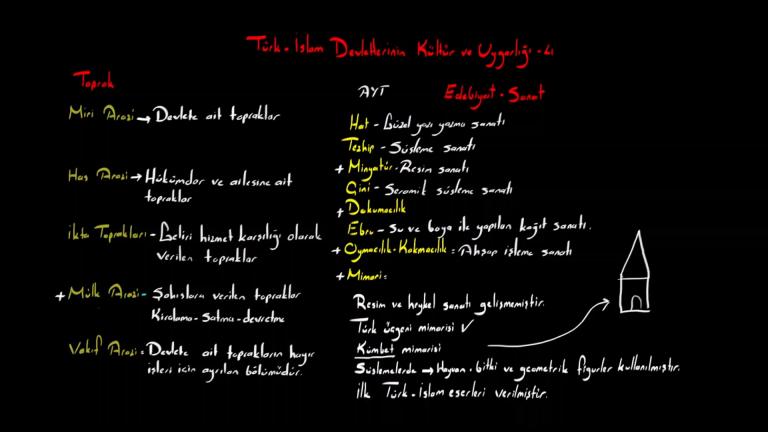 Türk-İslam Devletlerinin Kültür ve Uygarlığı-
Toprak
Miri Arazi → Devlete ait topraklar
Has Arazi → Hükümdar ve ailesine ait
topraklar
İkta Toprakları - Geliri hizmet karşılığı olarak
verilen topraklar
+ Mülk Arazi - Şahıslara verilen topraklar
Kiralama-Satma-devretme
Vakıf Arazi = Devlete ait toprakların hayır
işleri için ayrılan bölümüdür.
AYT
Edebiyat-Sanat
Hat - Güzel yazı yazma sanatı
Tezhip - Süsleme sanatı
+ Minyatür - Resim sanatı
Çini - Seramik süsleme sanatı
+ Dokumacılık
Ebru - Su ve boya ile yapılan kağıt sanatı.
+ Oymacılık-Kakmacılık = Ahşap işleme sanatı
+ Mimari =
Resim ve heykel sanatı gelişmemiştir.
Türk üçgeni mimarisi ✓
Kümbet mimarisi
Süslemelerde → Hayvan-bitki ve geometrik figürler kullanılmıştır.
İlk Türk-İslam eserleri verilmiştir.